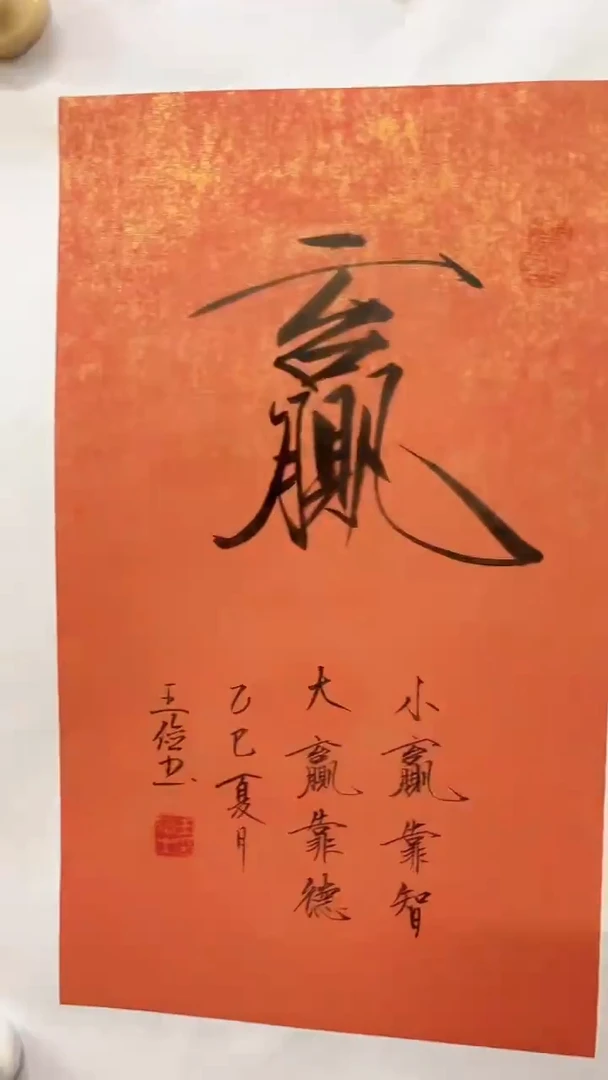 赢
小赢靠智
大赢靠德
乙巳夏月
王俭书